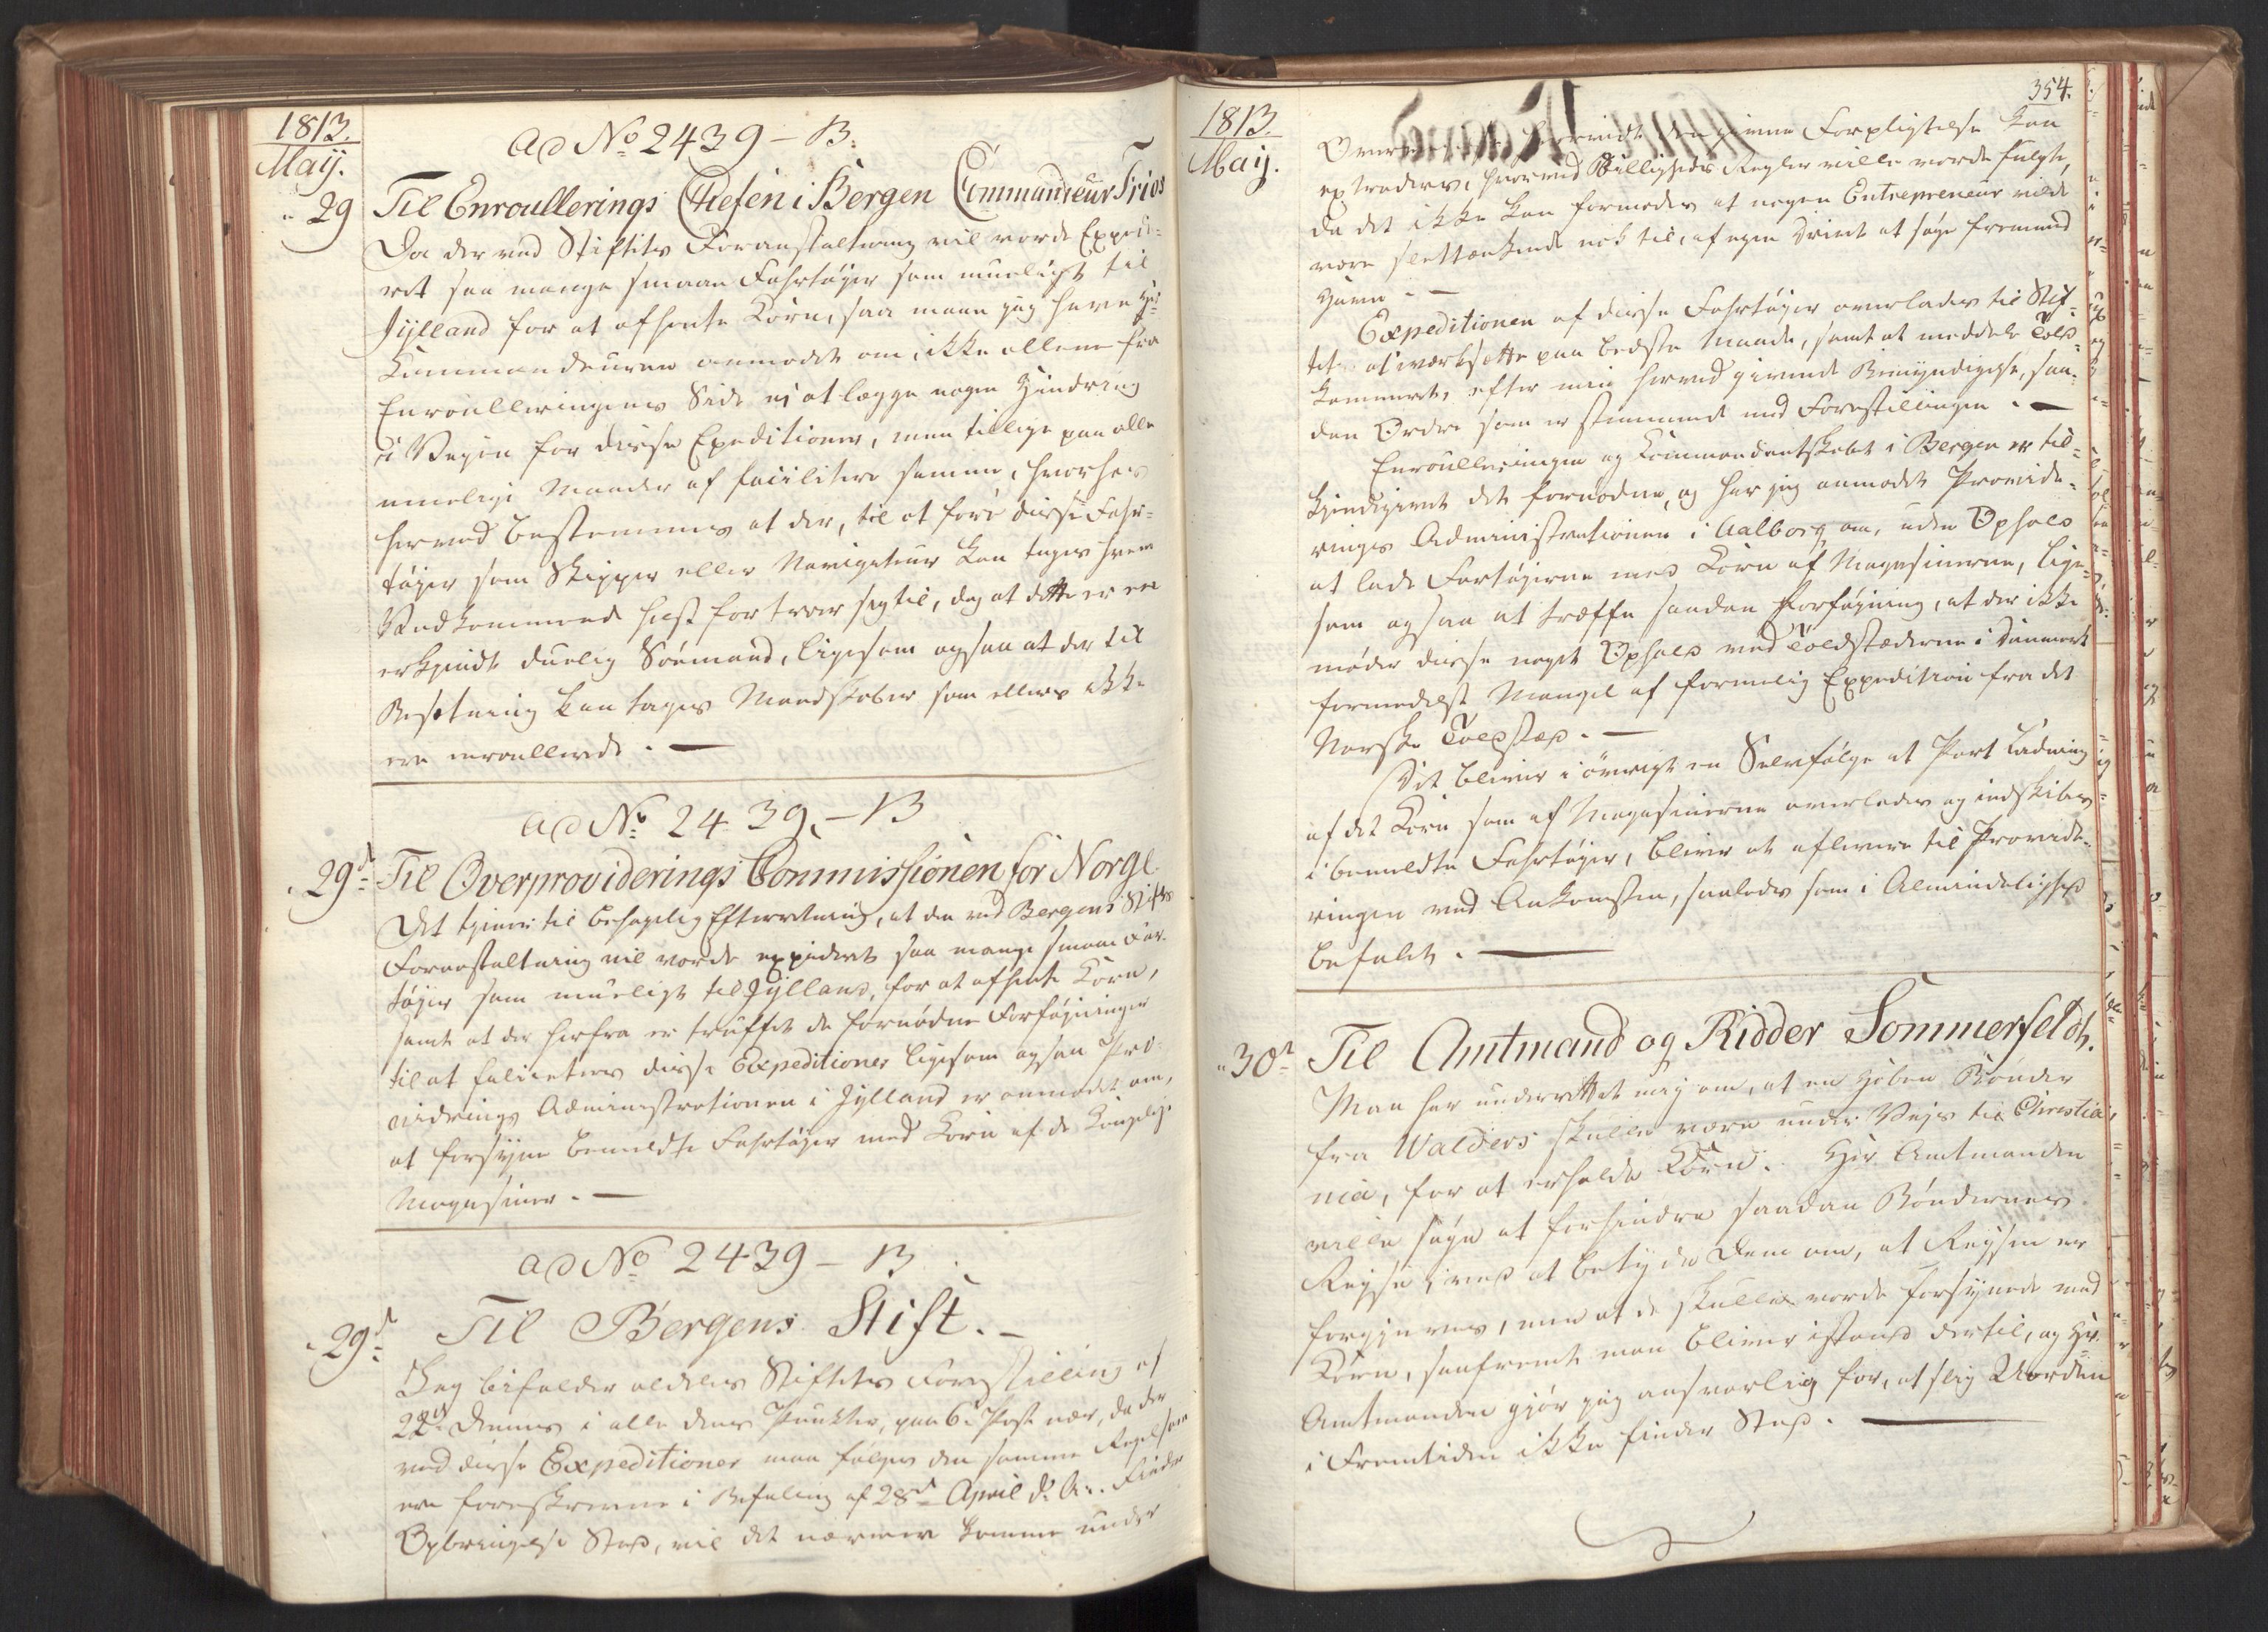 1813.
Maÿ.
ad No 2439 - B.
29 Til Enroullerings Chefen i Bergen Commandeur Fries
Da der ved Stiftets Foranstaltning vil vorde Expede-
ret saa mange smaae Fahrtøjer som mueligt til
Jÿlland for at afhente Korn, saa maae jeg have Hr
Kummandeuren anmodet om, ikke allene fra
Enroulleringens Side ej at lægge nogen Hindring
i Vejen for disse Expeditioner, men tillige paa alle
muelige Maader at facilitere samme, hvorhos
herved bestemmes at der, til at føre disse Fahr-
tøjer som Skipper eller Navigateur kan tages hvem
Vedkommende helst fortroer sig til, dog at dette er en
erkjendt duelig Sømand, ligesom ogsaa at der til
Besætning kan tages Mandskaber som ellers ikke
ere enroullerede. —
ad No 2439, - B
29d Til Overproviderings Commissionen for Norge
Det tjener til behagelig Efterretning, at der ved Bergens Stifts
Foranstaltning vil vorde expederet saa mange smaae Far-
tøjer som mueligt til Jÿlland, for at afhente Korn,
samt at der herfra er truffet de fornødne Forføjninger
til at facilitere disse Expeditioner ligesom ogsaa Pro-
viderings Administrationen i Jylland er anmodet om,
at forsyne bemeldte Fahrtøjer med Korn af de Kongelige
Magasiner. —
ad No 2439 - B.
29d Til Bergens Stift. -
Jeg bifalder aldeles Stiftets Forestilling af
22d dennes i alle dens Punkter, paa 6te Post nær, da der
ved disse Expeditioner maa følges den samme Regel som
ere foreskrevne i Befaling af 28d April d: A:. Finder
Opbringelse Sted, vil det nærmere komme under
354.
1813.
Maij.
givne Forpligtelse kan
extraderes, hvorved Billigheds Regler ville vorde fulgte,
da det ikke kan formodes at nogen Entrepreneur vilde
være slettænkende nok til, af egen Drivt at søge fremmed
Havn. —
Expeditionen af disse Fahrtøjer overlades til Stif-
tet at iværksætte paa bedste Maade, samt at meddele Told-
kammeret, efter min herved givende Bemyndigelse, saa-
dan Ordre som er stemmende med Forestillingen. —
Enroulleringen og Kommandantskabet i Bergen er til-
kjendegivet det fornødne, og har jeg anmodet Provide-
rings Administrationen i Aalborg om, uden Ophold
at lade Fartøjerne med Korn af Magasinerne, lige-
som ogsaa at træffe saadan Forføjning, at der ikke
møder disse noget Ophold ved Toldstæderne i Danmark
formedelst Mangel af formelig Expedition fra det
Norske Toldsted. —
Det bliver i øvrigt en Selvfølge at Part Ladning
af det Korn som af Magasinerne overlades og indskibes
i bemeldte Fahrtøjer, bliver at aflevere til Provide-
ringen ved Ankomsten, saaledes som i Almindelighed
befalet. —
30d Til Amtmand og Ridder Sommerfeldt.
Man har underrettet mig om, at en Hoben Bønder
fra Walders skulle være under Vejs til Christia-
nia, for at erholde Korn. Hr. Amtmanden
ville søge at forhindre saadan Bøndernes
Rejse, ved at betyde Dem om, at Rejsen er
forgjeves, men at de skulle vorde forsynede med
Korn, saafremt man bliver istand dertil, og Hr.
Amtmanden gjør jeg ansvarlig for, at slig Uorden
i Fremtiden ikke finder Sted. —